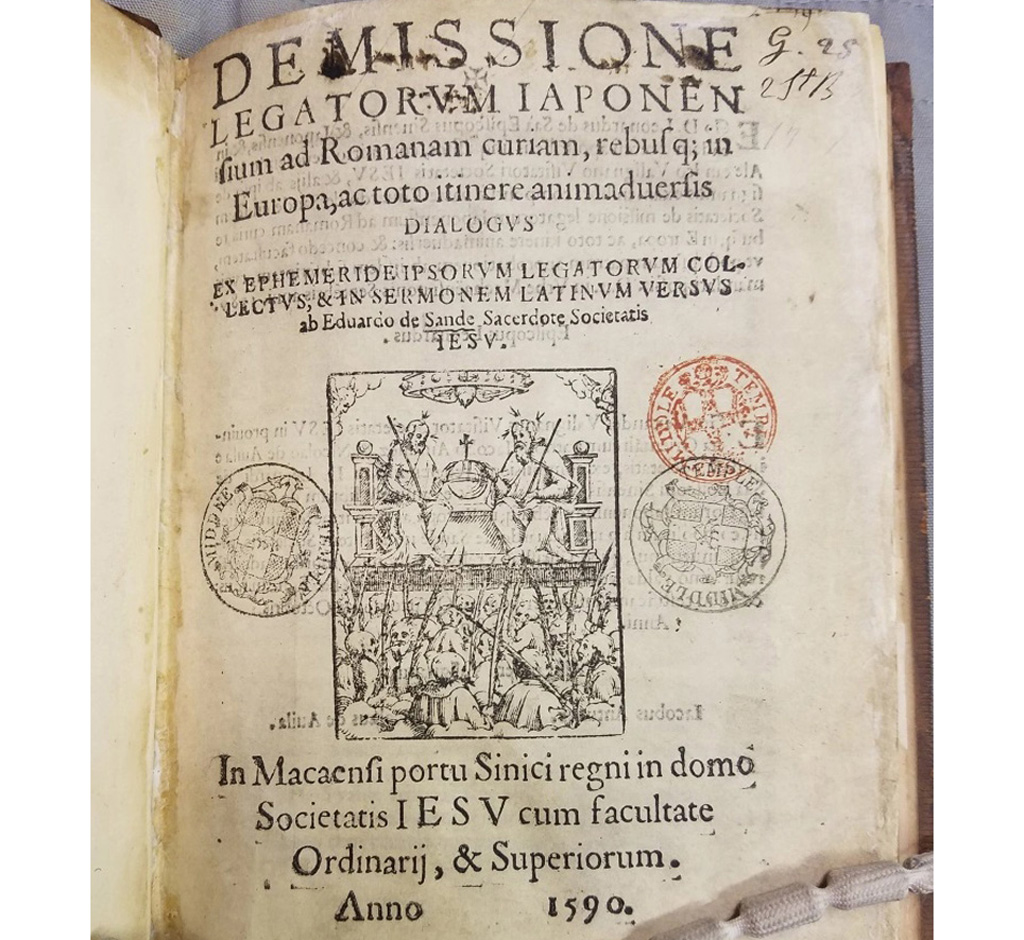 DE MISSIONE
LEGATORVM IAPONEN
sium ad Romanam curiam, rebusq; in
Europa, ac toto itinere animaduersis
DIALOGVS
EX EPHEMERIDE IPSORVM LEGATORVM COL-
LECTVS, & IN SERMONEM LATINVM VERSVS
ab Eduardo de Sande Sacerdote Societatis
IESV.
G. 25
MIDDLE TEMPLE
MIDDLE TEMPLE
MIDDLE TEMPLE
In Macaensi portu Sinici regni in domo
Societatis IESV cum facultate
Ordinarij, & Superiorum.
Anno 1590.